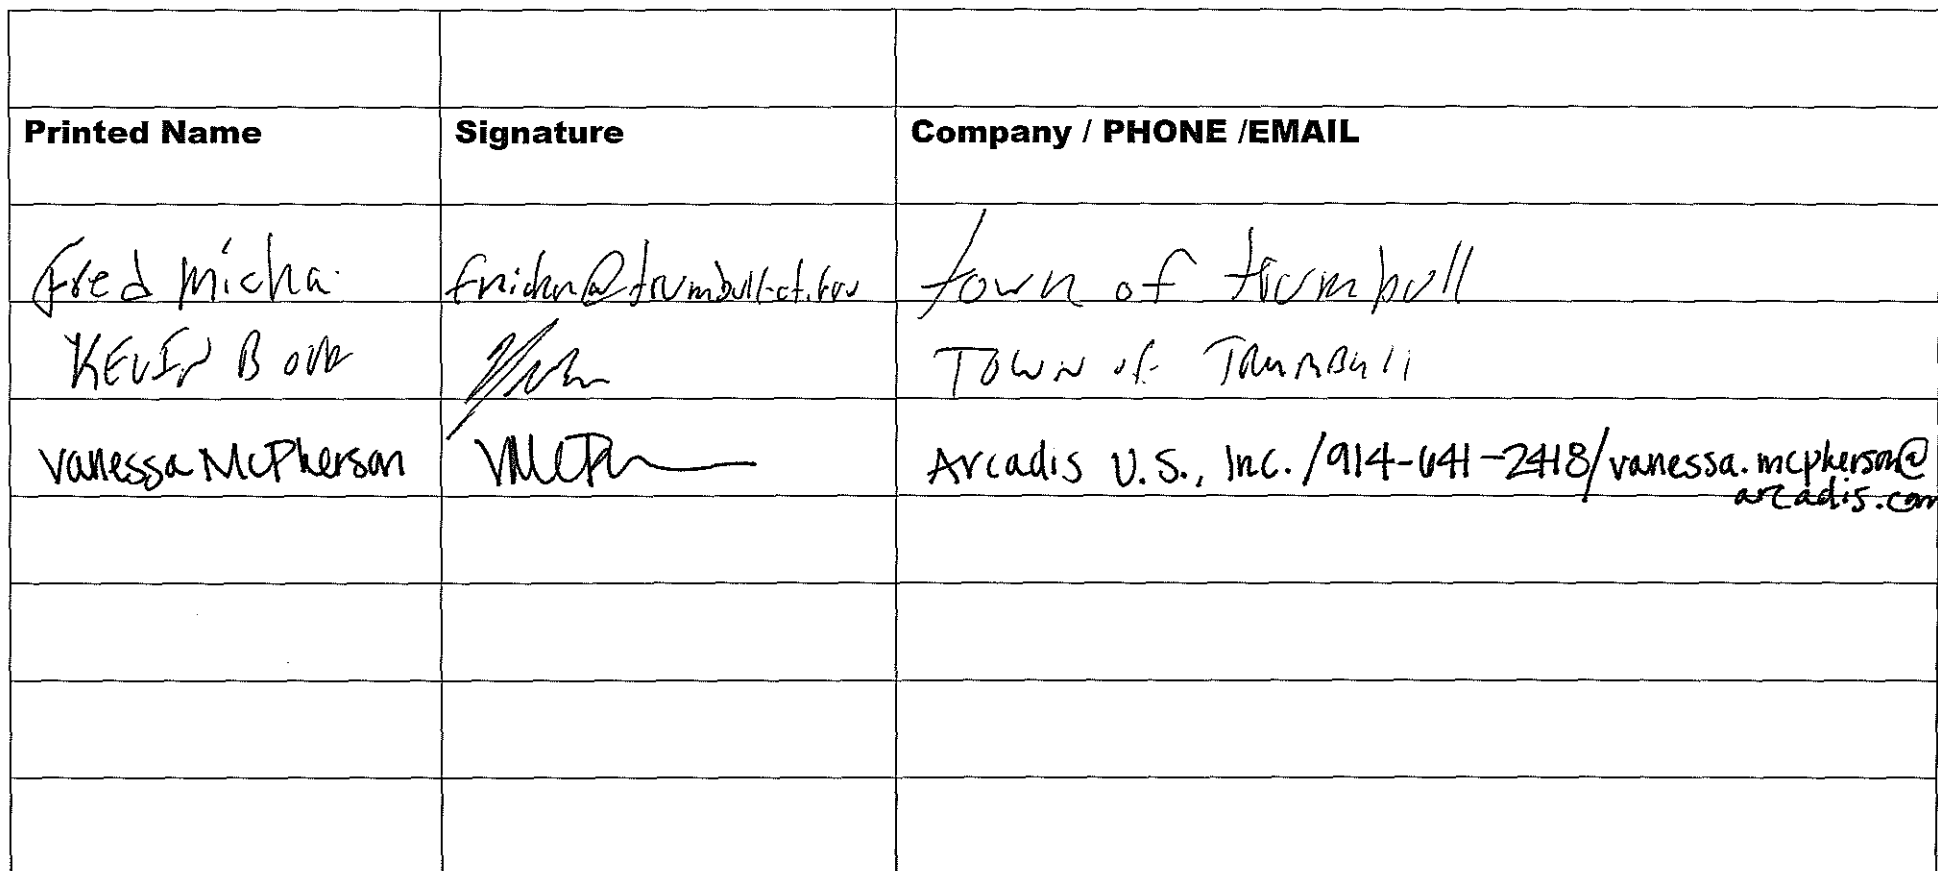 Printed Name Signature Company / PHONE /EMAIL
Fred Micha town of trumbull
KEVIN B Town of Trumbull
Vanessa McPherson Arcadis U.S., Inc. /914-641-2418/vanessa.mcpherson@
arcadis.com